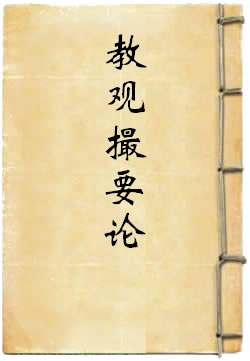 教观撮要论